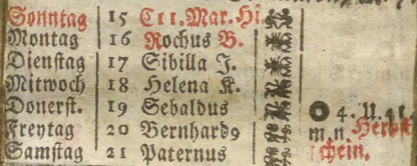 Sonntag 15 C11. Mar. Hi.
Montag 16 Rochus B.
Dienstag 17 Sibilla J.
Mitwoch 18 Helena K.
Donerst. 19 Sebaldus 4. U. 41
Freytag 20 Bernhard9 m. n. Herbst
Samstag 21 Paternus schein.